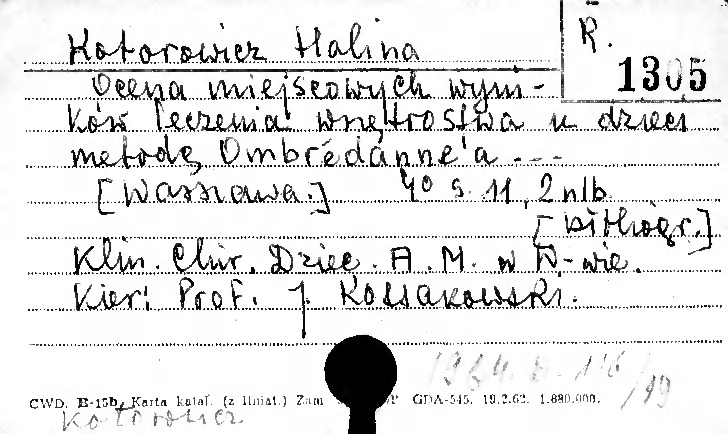 Kotorowicz Halina
R. 1305
Ocena miejscowych wyni-
ków leczenia wnętrostwa u dzieci
metodą Ombrédanne'a ---
[Warszawa.] 4° s. 11, 2 nlb.
Klin. Chir. Dziec. A. M. w W-wie.
Kier: Prof. J. Kossakowski.
1964. D. 116/19
CWD. B-15b, Karta katal. (z liniat.) Zam GDA-545. 19.2.62. 1.880.000.
Kotorowicz